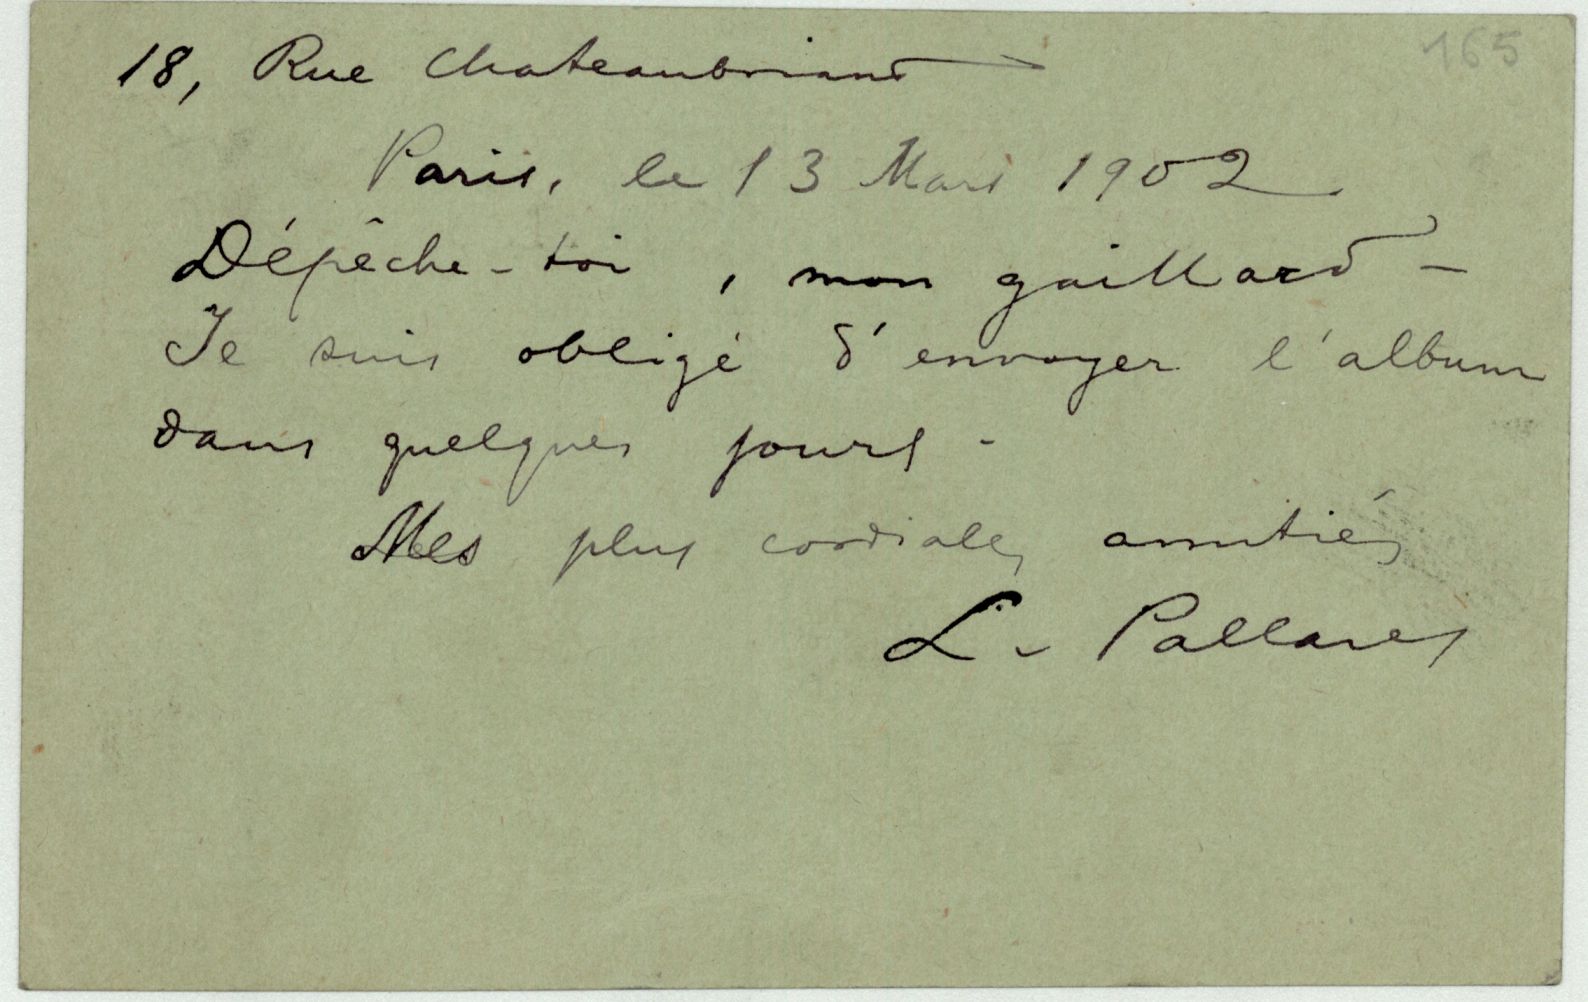 165
18, Rue Chateaubriand
Paris, le 13 Mars 1902
Dépêche-toi, mon gaillard -
Je suis obligé d'envoyer l'album
dans quelques jours -
Mes plus cordiales amitiés
L. Pallares